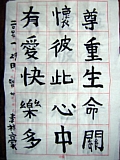 尊重生命關
懷彼此心中
有愛快樂多